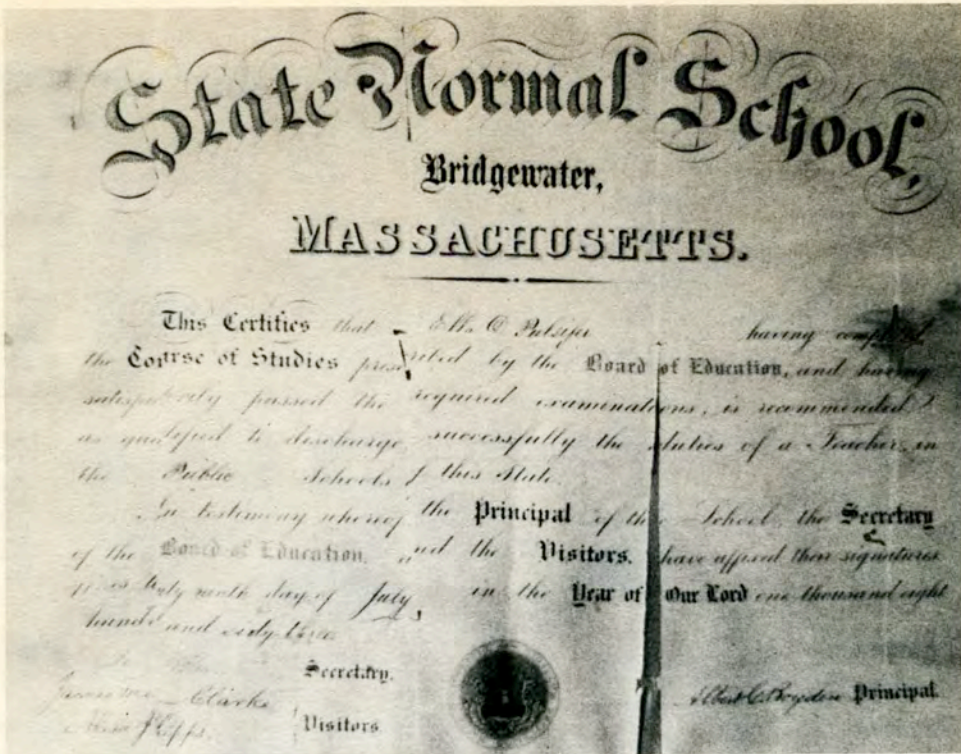 State Normal School,
Bridgewater,
MASSACHUSETTS.
This Certifies that Pulsifer having
the Course of Studies by the Board of Education, and having
passed the required examinations, is recommended
as qualified to discharge successfully the duties of a Teacher in
the Public Schools of this State.
In testimony whereof the Principal of the School, the Secretary
of the Board of Education, and the Visitors, have affixed their signatures
ninth day of July, in the Year of Our Lord one thousand eight
and
Secretary.
Clarke
Albert G. Boyden Principal.
Phipps. Visitors